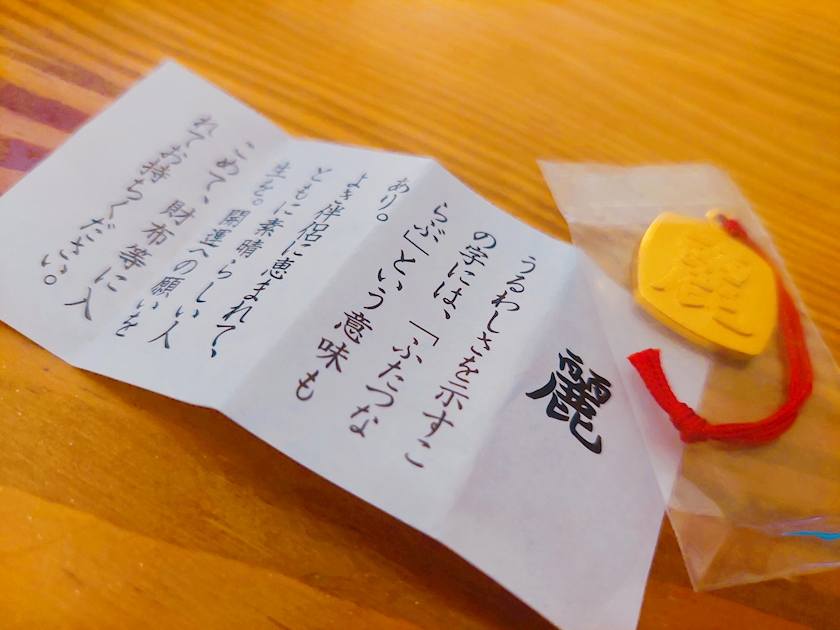 麗
うるわしさを示すこ
の字には、「ふたつな
らぶ」という意味も
あり。
よき伴侶に恵まれて、
ともに素晴らしい人
生を。開運への願いを
こめて、財布等に入
れてお持ちください。
麗